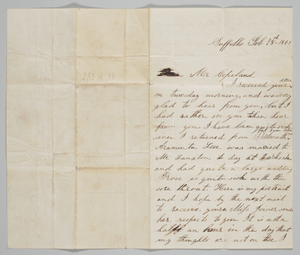 Suffolk Feb 28th 1861
Mr Copeland
I received yours
on tuesday morning, and was very
glad to hear from you, but I
had rather see you than hear
from you I have been
ever I returned from
Araminta Love was married to
Mr to day at
and had quite a large wedding
Rose is quite with the
sore throat. Here is my portrait
and I hope by the next mail
to receive yours Miss sends
her respects to you It is not a
half an hour in the day that
my thoughts are not on the I